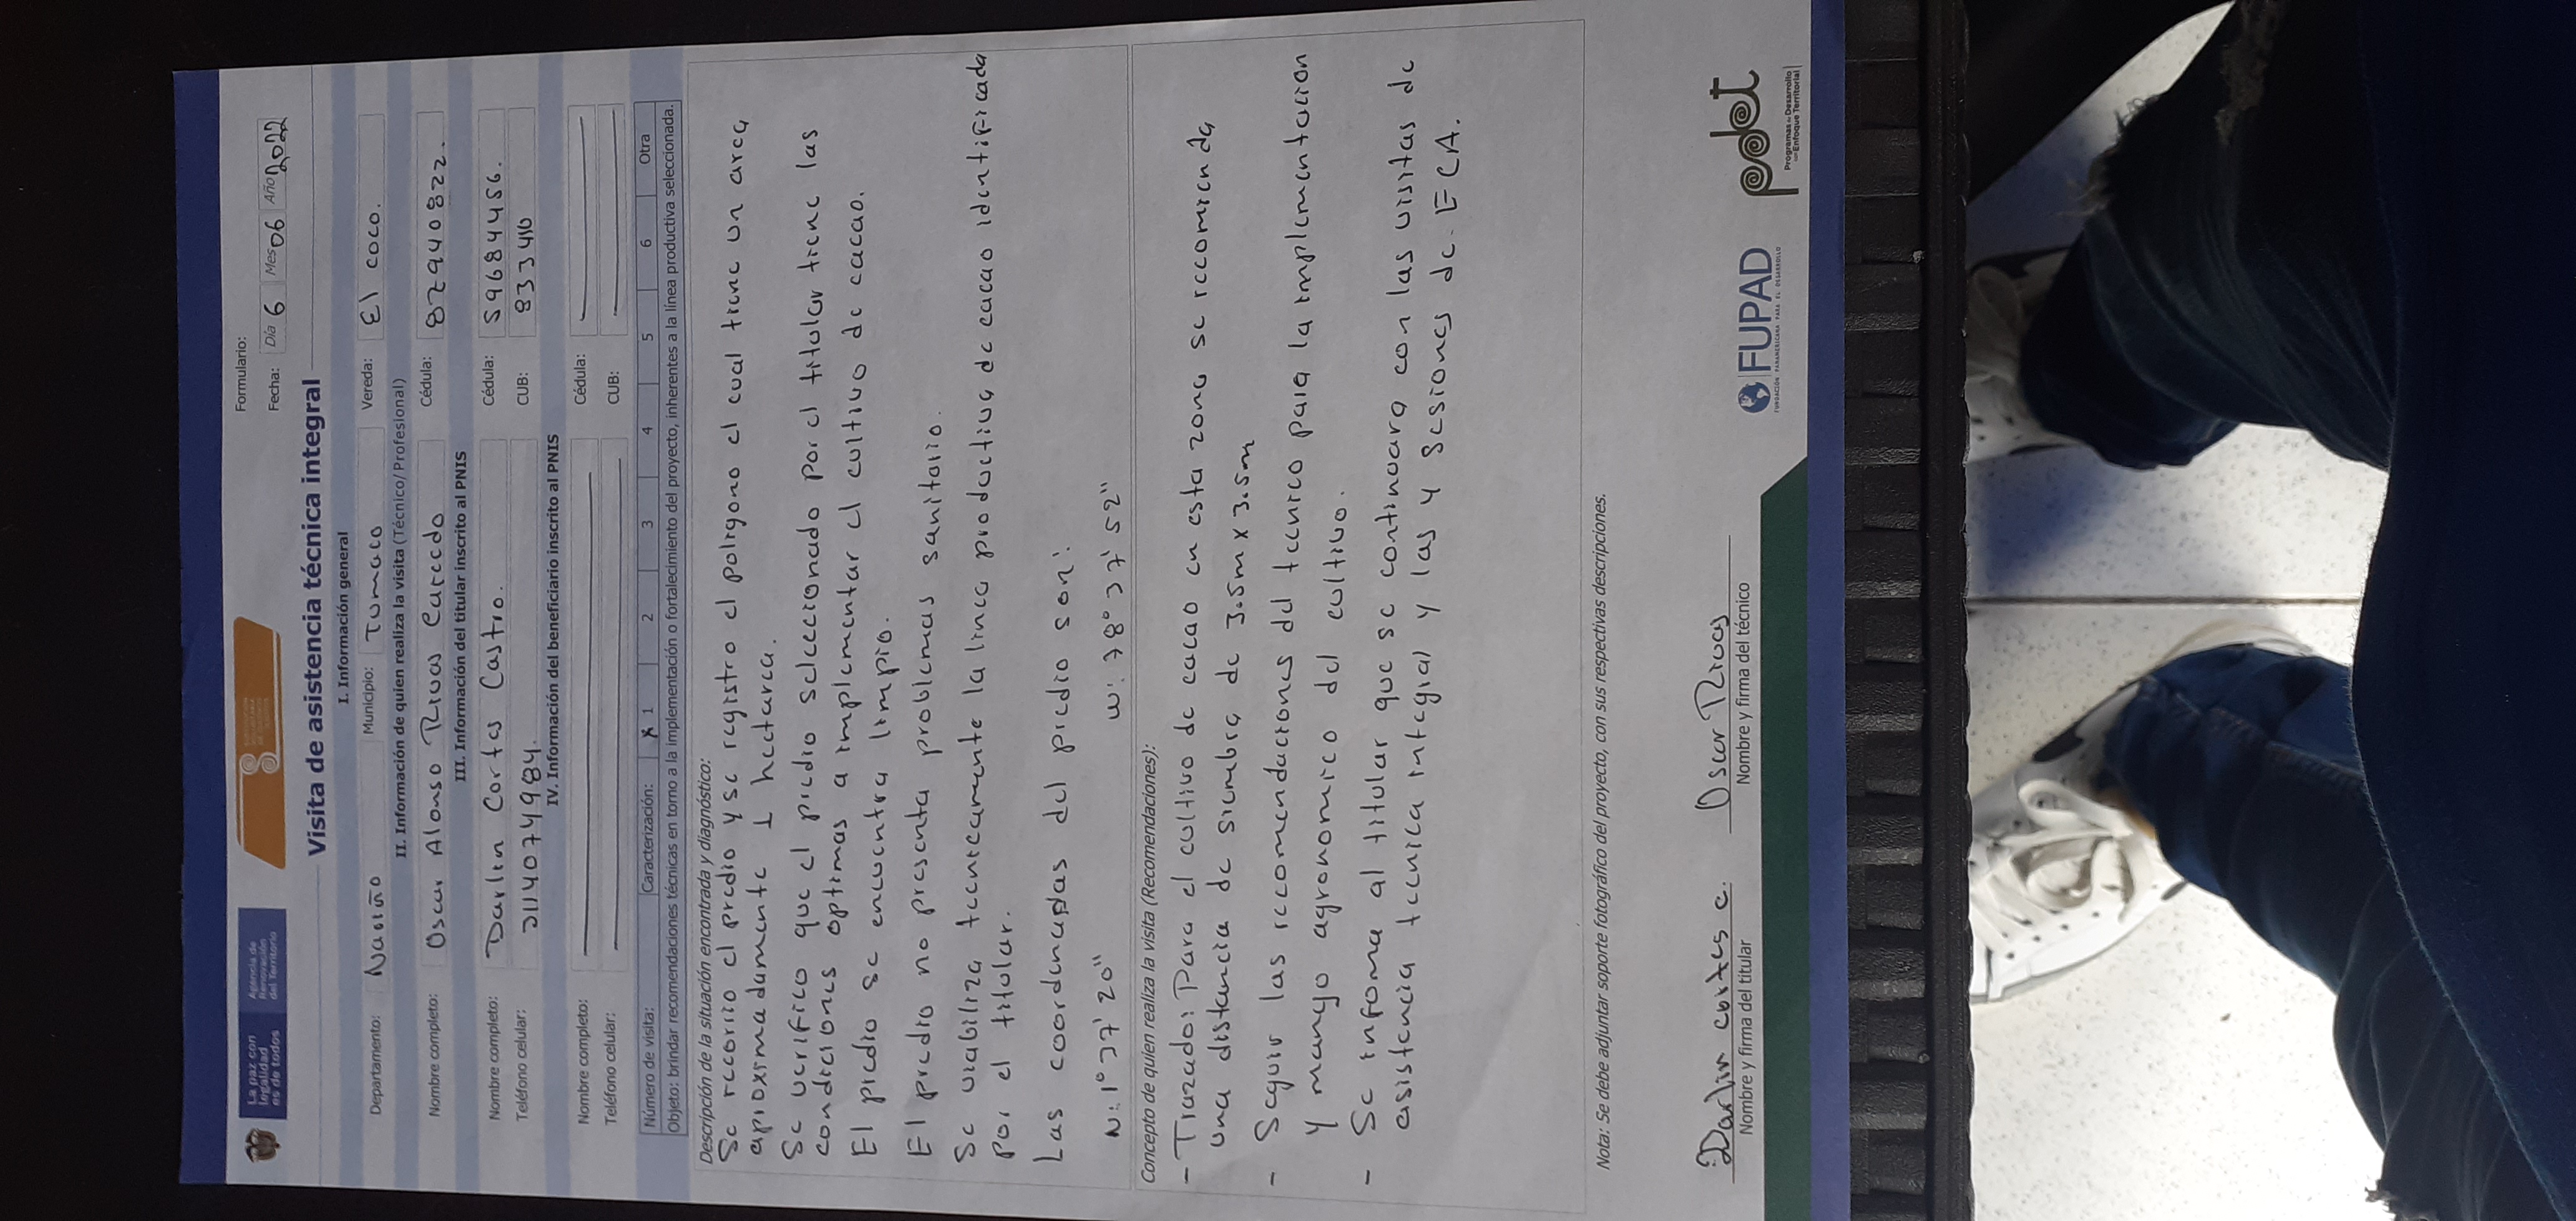 La paz con
legalidad
es de todos
Agencia de
Renovación
del Territorio
Formulario:
Fecha: Día 6 Mes 06 Año 2022
Visita de asistencia técnica integral
I. Información general
Departamento: Nariño Municipio: Tumaco Vereda: El coco.
II. Información de quien realiza la visita (Técnico/Profesional)
Nombre completo: Oscar Alonso Rivas Caicedo Cédula: 87940822.
III. Información del titular inscrito al PNIS
Nombre completo: Darlin Cortes Castro. Cédula: 59684456.
Teléfono celular: 3114074984. CUB: 833410
IV. Información del beneficiario inscrito al PNIS
Nombre completo: Cédula:
Teléfono celular: CUB:
Número de visita: Caracterización: X 1 2 3 4 5 6 Otra
Objeto: brindar recomendaciones técnicas en torno a la implementación o fortalecimiento del proyecto, inherentes a la línea productiva seleccionada.
Descripción de la situación encontrada y diagnóstico:
Se recorrio el predio y se registro el poligono el cual tiene un area
aproximadamente 1 hectarea.
Se verifico que el predio seleccionado por el titular tiene las
condiciones optimas a implementar el cultivo de cacao.
El predio se encuentra limpio.
El predio no presenta problemas sanitario.
Se viabiliza tecnicamente la linea productiva de cacao identificada
por el titular.
Las coordenadas del predio son:
N: 1° 37' 20" W: 78° 37' 52"
Concepto de quien realiza la visita (Recomendaciones):
- Trazado: Para el cultivo de cacao en esta zona se recomienda
una distancia de siembra de 3.5m x 3.5m
- Seguir las recomendaciones del tecnico para la implementacion
y manejo agronomico del cultivo.
- Se informa al titular que se continuara con las visitas de
asistencia tecnica integral y las y sesiones de ECA.
Nota: Se debe adjuntar soporte fotográfico del proyecto, con sus respectivas descripciones.
Darlin cortes c. Oscar Rivas
Nombre y firma del titular Nombre y firma del técnico
FUPAD
FUNDACIÓN PANAMERICANA PARA EL DESARROLLO
pdet
Programas de Desarrollo
con Enfoque Territorial